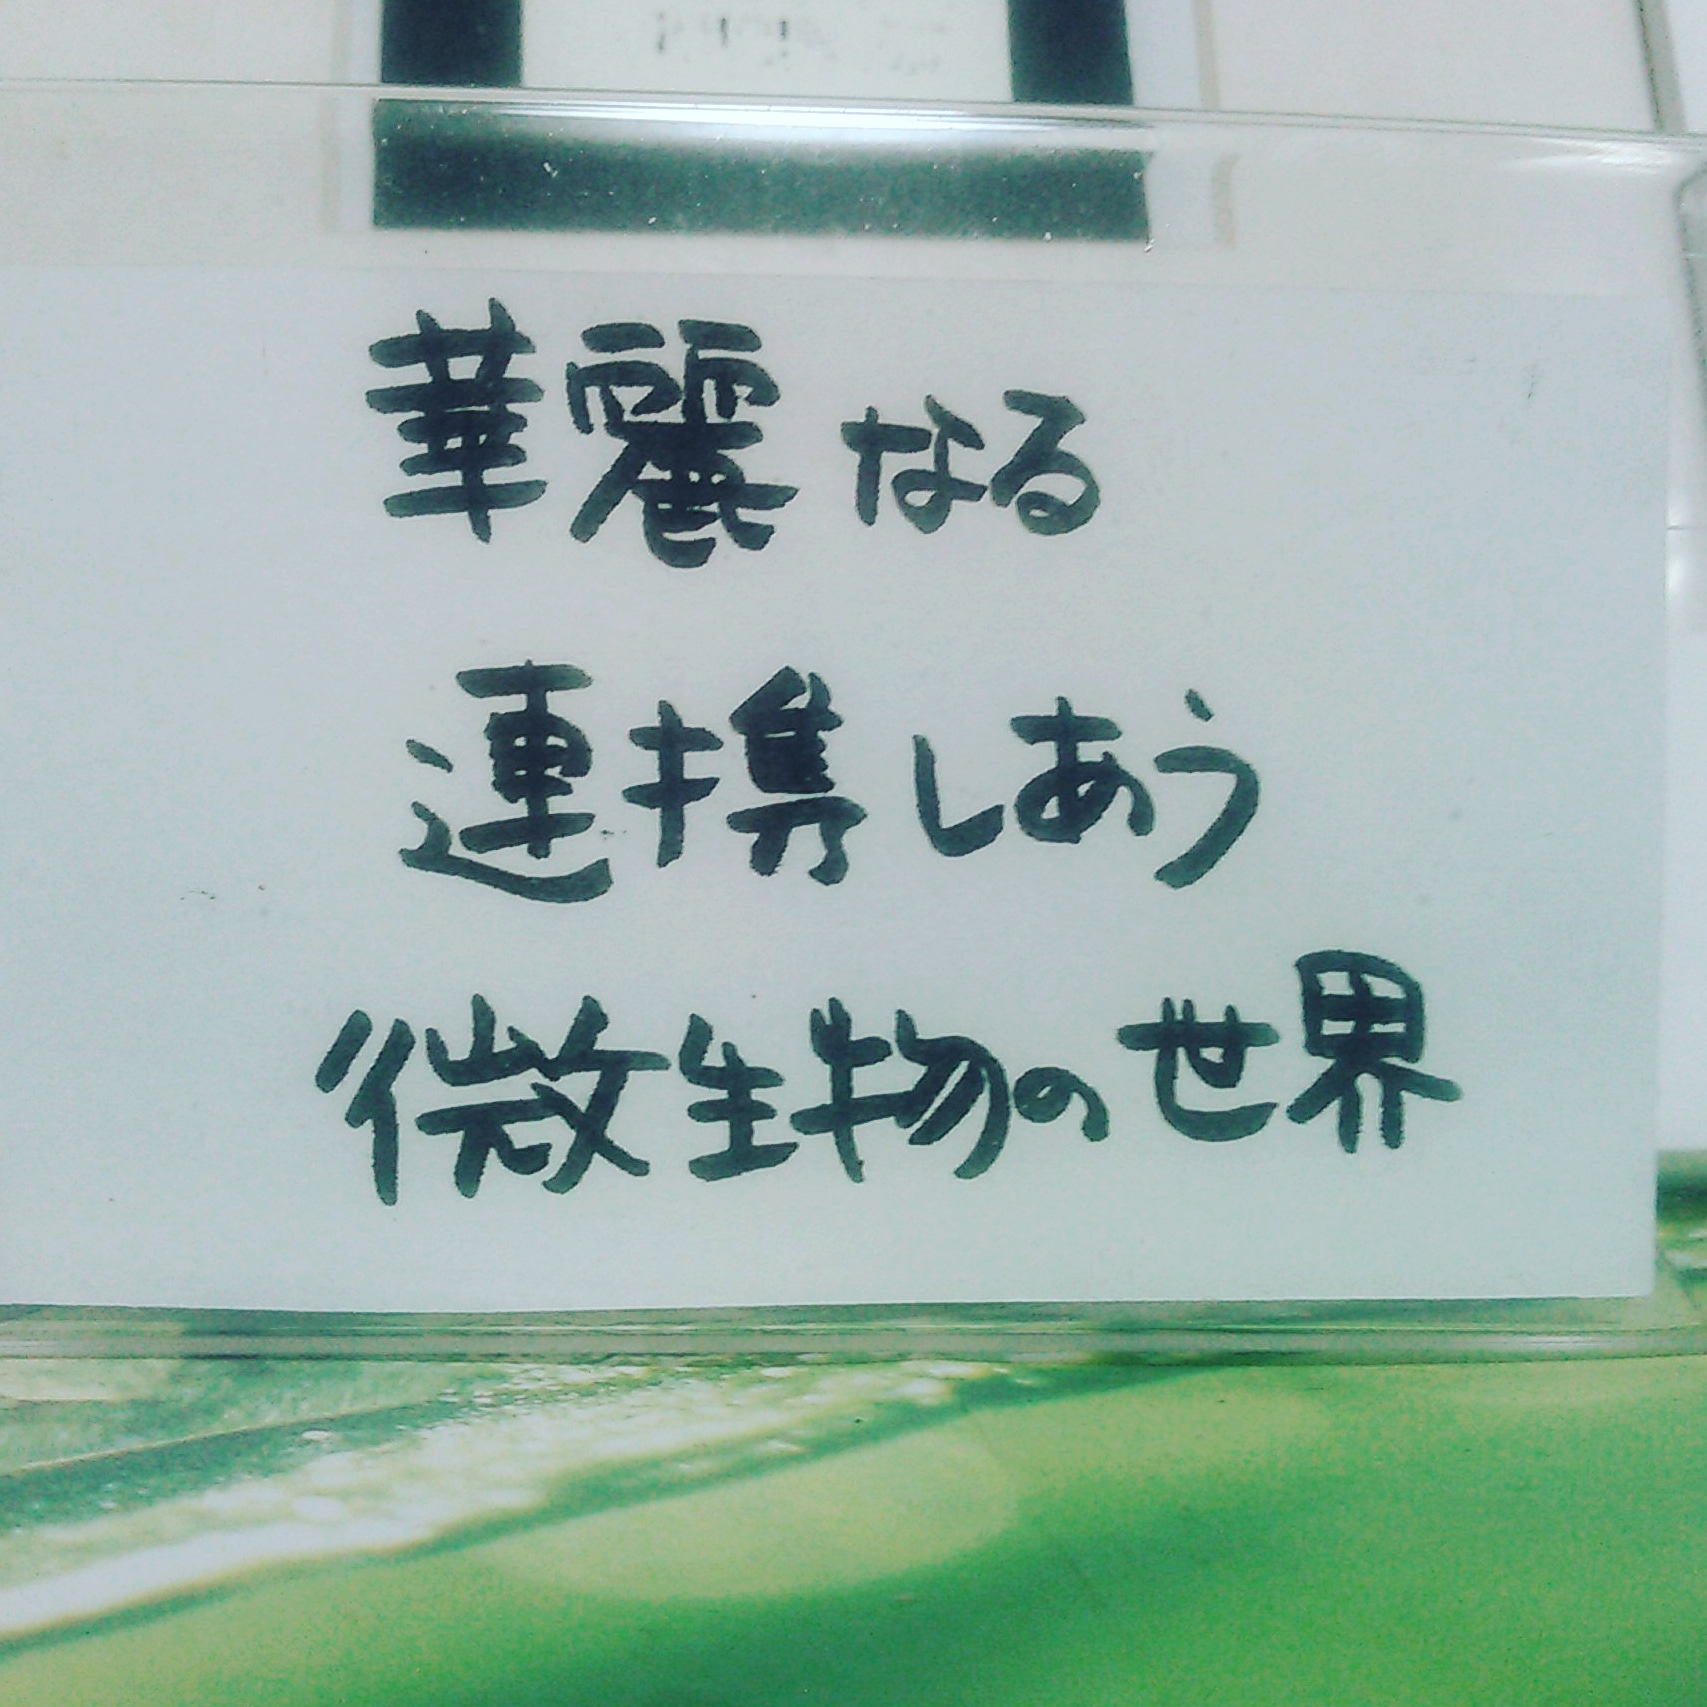 華麗なる
連携しあう
微生物の世界